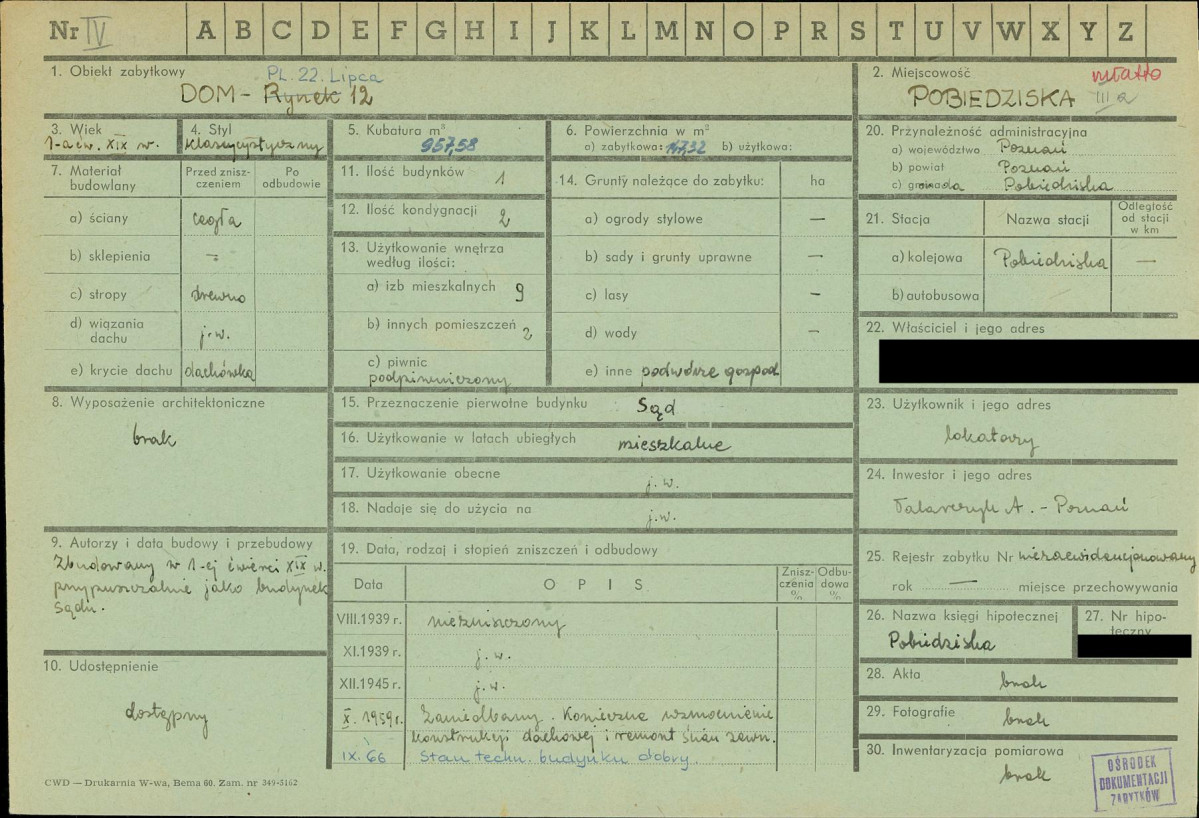 Nr IV A B C D E F G H I J K L M N O P R S T U V W X Y Z
1. Obiekt zabytkowy
PL. 22. Lipca
DOM - Rynek 12
2. Miejscowość
miasto
POBIEDZISKA III a
3. Wiek
1-a ćw. XIX w.
4. Styl
klasycystyczny
5. Kubatura m³
957,58
6. Powierzchnia w m²
a) zabytkowa: b) użytkowa:
7. Materiał budowlany
Przed zniszczeniem
Po odbudowie
a) ściany cegła
b) sklepienia -
c) stropy drewno
d) wiązania dachu j.w.
e) krycie dachu dachówka
8. Wyposażenie architektoniczne
brak
9. Autorzy i data budowy i przebudowy
Zbudowany w 1-ej ćwierci XIX w.
przypuszczalnie jako budynek
Sądu.
10. Udostępnienie
dostępny
11. Ilość budynków 1
12. Ilość kondygnacji 2
13. Użytkowanie wnętrza
według ilości:
a) izb mieszkalnych 9
b) innych pomieszczeń 2
c) piwnic
podpiwniczony
14. Grunty należące do zabytku: ha
a) ogrody stylowe —
b) sady i grunty uprawne —
c) lasy —
d) wody —
e) inne podwórze gospod
15. Przeznaczenie pierwotne budynku Sąd
16. Użytkowanie w latach ubiegłych mieszkalne
17. Użytkowanie obecne j.w.
18. Nadaje się do użycia na j.w.
19. Data, rodzaj i stopień zniszczeń i odbudowy
Data O P I S Zniszczenia % Odbudowa %
VIII.1939 r. niezniszczony
XI.1939 r. j.w.
XII.1945 r. j.w.
X. 1959 r. Zaniedbany. Konieczne wzmocnienie
konstrukcji dachowej i remont ścian zewn.
IX. 66 Stan techn. budynku dobry.
20. Przynależność administracyjna
a) województwo Poznań
b) powiat Poznań
c) gromada Pobiedziska
21. Stacja Nazwa stacji Odległość od stacji w km
a) kolejowa Pobiedziska —
b) autobusowa
22. Właściciel i jego adres
23. Użytkownik i jego adres
lokatorzy
24. Inwestor i jego adres
A. - Poznań
25. Rejestr zabytku Nr niezaewidencjonowany
rok — miejsce przechowywania
26. Nazwa księgi hipotecznej
Pobiedziska
27. Nr hipoteczny
28. Akta brak
29. Fotografie brak
30. Inwentaryzacja pomiarowa
brak
OŚRODEK
DOKUMENTACJI
ZABYTKÓW
CWD — Drukarnia W-wa, Bema 60. Zam. nr 349-3162